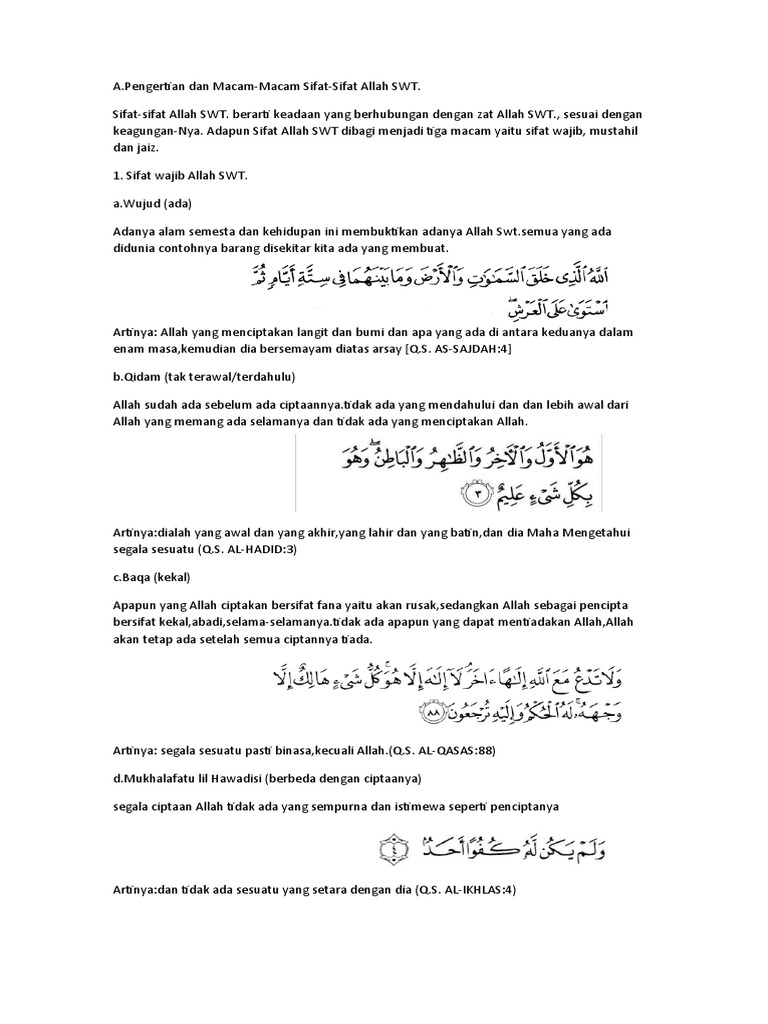 A.Pengertian dan Macam-Macam Sifat-Sifat Allah SWT.
Sifat-sifat Allah SWT. berarti keadaan yang berhubungan dengan zat Allah SWT., sesuai dengan
keagungan-Nya. Adapun Sifat Allah SWT dibagi menjadi tiga macam yaitu sifat wajib, mustahil
dan jaiz.
1. Sifat wajib Allah SWT.
a.Wujud (ada)
Adanya alam semesta dan kehidupan ini membuktikan adanya Allah Swt.semua yang ada
didunia contohnya barang disekitar kita ada yang membuat.
اَللّٰهُ الَّذِى خَلَقَ السَّمٰوٰتِ وَالْاَرْضَ وَمَا بَيْنَهُمَا فِى سِتَّةِ اَيَّامٍ ثُمَّ
اسْتَوٰى عَلَى الْعَرْشِۖ
Artinya: Allah yang menciptakan langit dan bumi dan apa yang ada di antara keduanya dalam
enam masa,kemudian dia bersemayam diatas arsay [Q.S. AS-SAJDAH:4]
b.Qidam (tak terawal/terdahulu)
Allah sudah ada sebelum ada ciptaannya.tidak ada yang mendahului dan dan lebih awal dari
Allah yang memang ada selamanya dan tidak ada yang menciptakan Allah.
هُوَ الْاَوَّلُ وَالْاٰخِرُ وَالظَّاهِرُ وَالْبَاطِنُۖ وَهُوَ
بِكُلِّ شَىْءٍ عَلِيْمٌ ٣
Artinya:dialah yang awal dan yang akhir,yang lahir dan yang batin,dan dia Maha Mengetahui
segala sesuatu (Q.S. AL-HADID:3)
c.Baqa (kekal)
Apapun yang Allah ciptakan bersifat fana yaitu akan rusak,sedangkan Allah sebagai pencipta
bersifat kekal,abadi,selama-selamanya.tidak ada apapun yang dapat mentiadakan Allah,Allah
akan tetap ada setelah semua ciptannya tiada.
وَلَا تَدْعُ مَعَ اللَّهِ إِلَٰهًا ءَاخَرَ ۘ لَآ إِلَٰهَ إِلَّا هُوَ ۚ كُلُّ شَىْءٍ هَالِكٌ إِلَّا
وَجْهَهُۥ ۚ لَهُ الْحُكْمُ وَإِلَيْهِ تُرْجَعُونَ ٨٨
Artinya: segala sesuatu pasti binasa,kecuali Allah.(Q.S. AL-QASAS:88)
d.Mukhalafatu lil Hawadisi (berbeda dengan ciptaanya)
segala ciptaan Allah tidak ada yang sempurna dan istimewa seperti penciptanya
وَلَمْ يَكُن لَّهُۥ كُفُوًا أَحَدٌۢ ٤
Artinya:dan tidak ada sesuatu yang setara dengan dia (Q.S. AL-IKHLAS:4)